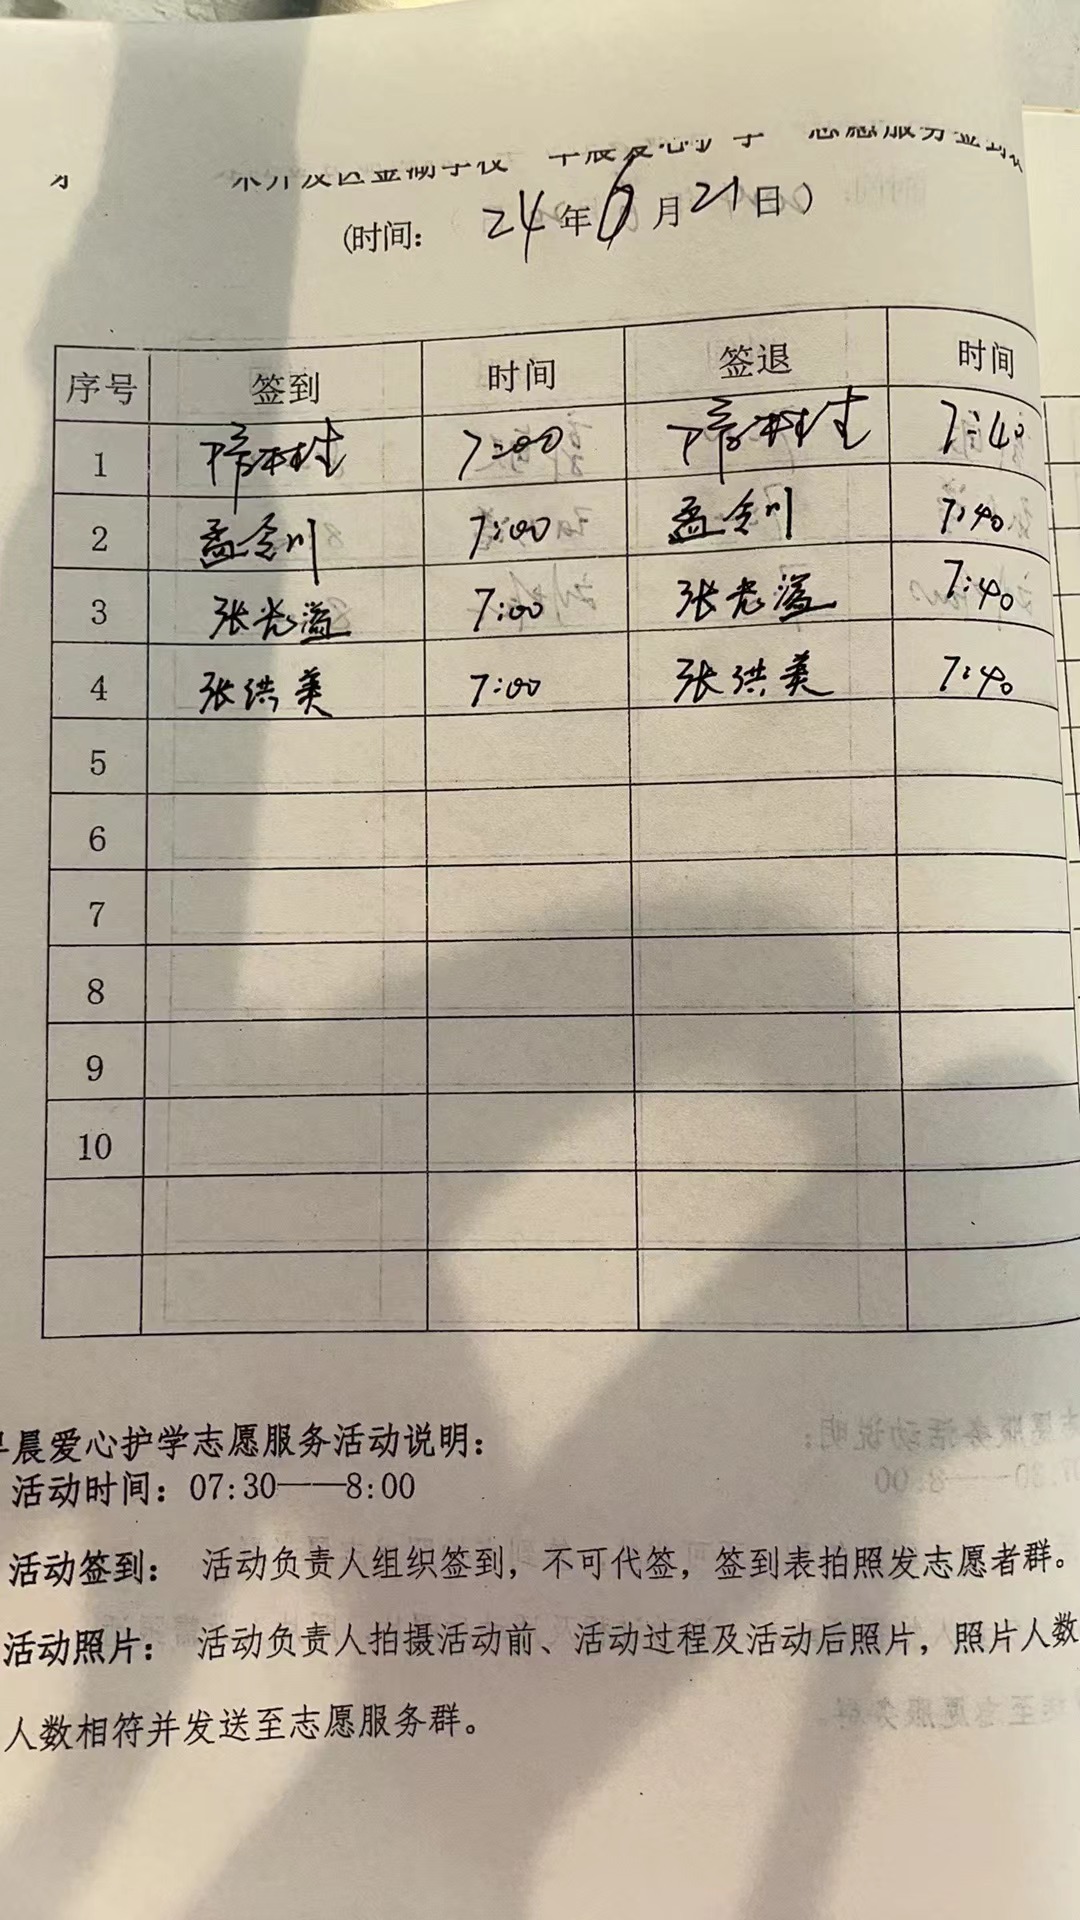 (时间： 24年6月21日)
序号 签到 时间 签退 时间
1 7:00 7:40
2 孟令川 7:00 孟令川 7:40
3 张光溢 7:00 张光溢 7:40
4 张洪美 7:00 张洪美 7:40
5
6
7
8
9
10
早晨爱心护学志愿服务活动说明：
活动时间：07:30——8:00
活动签到： 活动负责人组织签到，不可代签，签到表拍照发志愿者群。
活动照片： 活动负责人拍摄活动前、活动过程及活动后照片，照片人数
人数相符并发送至志愿服务群。